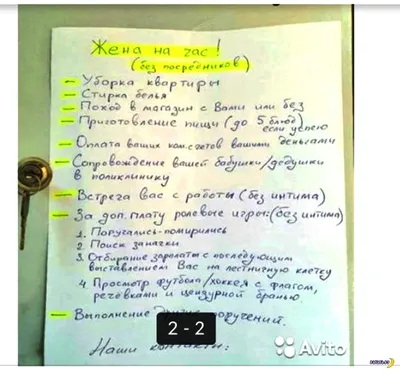 Жена на час!
(без посредников)
Уборка квартиры
Стирка белья
Поход в магазин с Вами или без
Приготовление пищи (до 5 блюд)
если успею
Оплата ваших ком. счетов вашими деньгами
Сопровождение вашей бабушки/дедушки
в поликлинику
Встреча вас с работы (без интима)
За доп. плату ролевые игры: (без интима)
1. Поругались-помирились
2. Поиск заначки
3. Отбирание зарплаты с последующим
выставлением Вас на лестничную клетку
4. Просмотр футбола/хоккея с флагом,
речёвками и цензурной бранью.
Выполнение поручений.
2 - 2
Наши контакты:
Avito